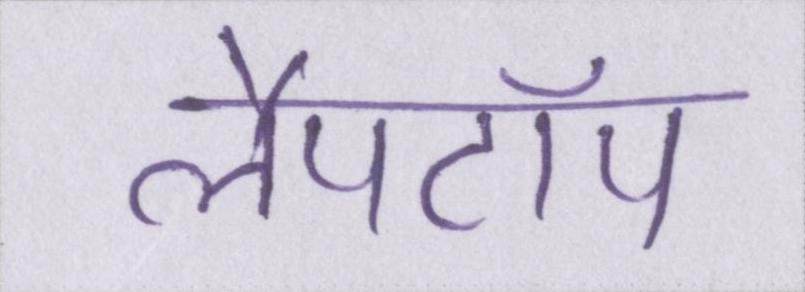 लैपटॉप